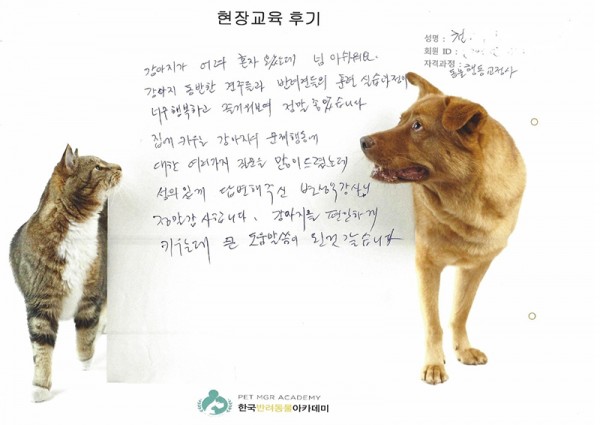 현장교육 후기
성명 : 천
회원 ID :
자격과정 : 동물행동교정사
강아지가 어려 혼자 왔는데 넘 아쉬워요.
강아지 동반한 견주들과 반려견들의 훈련 실습과정이
너무행복하고 즐거워보여 정말 좋았습니다
집에 키우는 강아지의 문제행동에
대한 여러가지 질문을 많이드렸는데
성의있게 답변해주신 강사님
정말감사합니다. 강아지를 편안하게
키우는데 큰 도움말씀이 된것 같습니다
PET MGR ACADEMY
한국반려동물아카데미